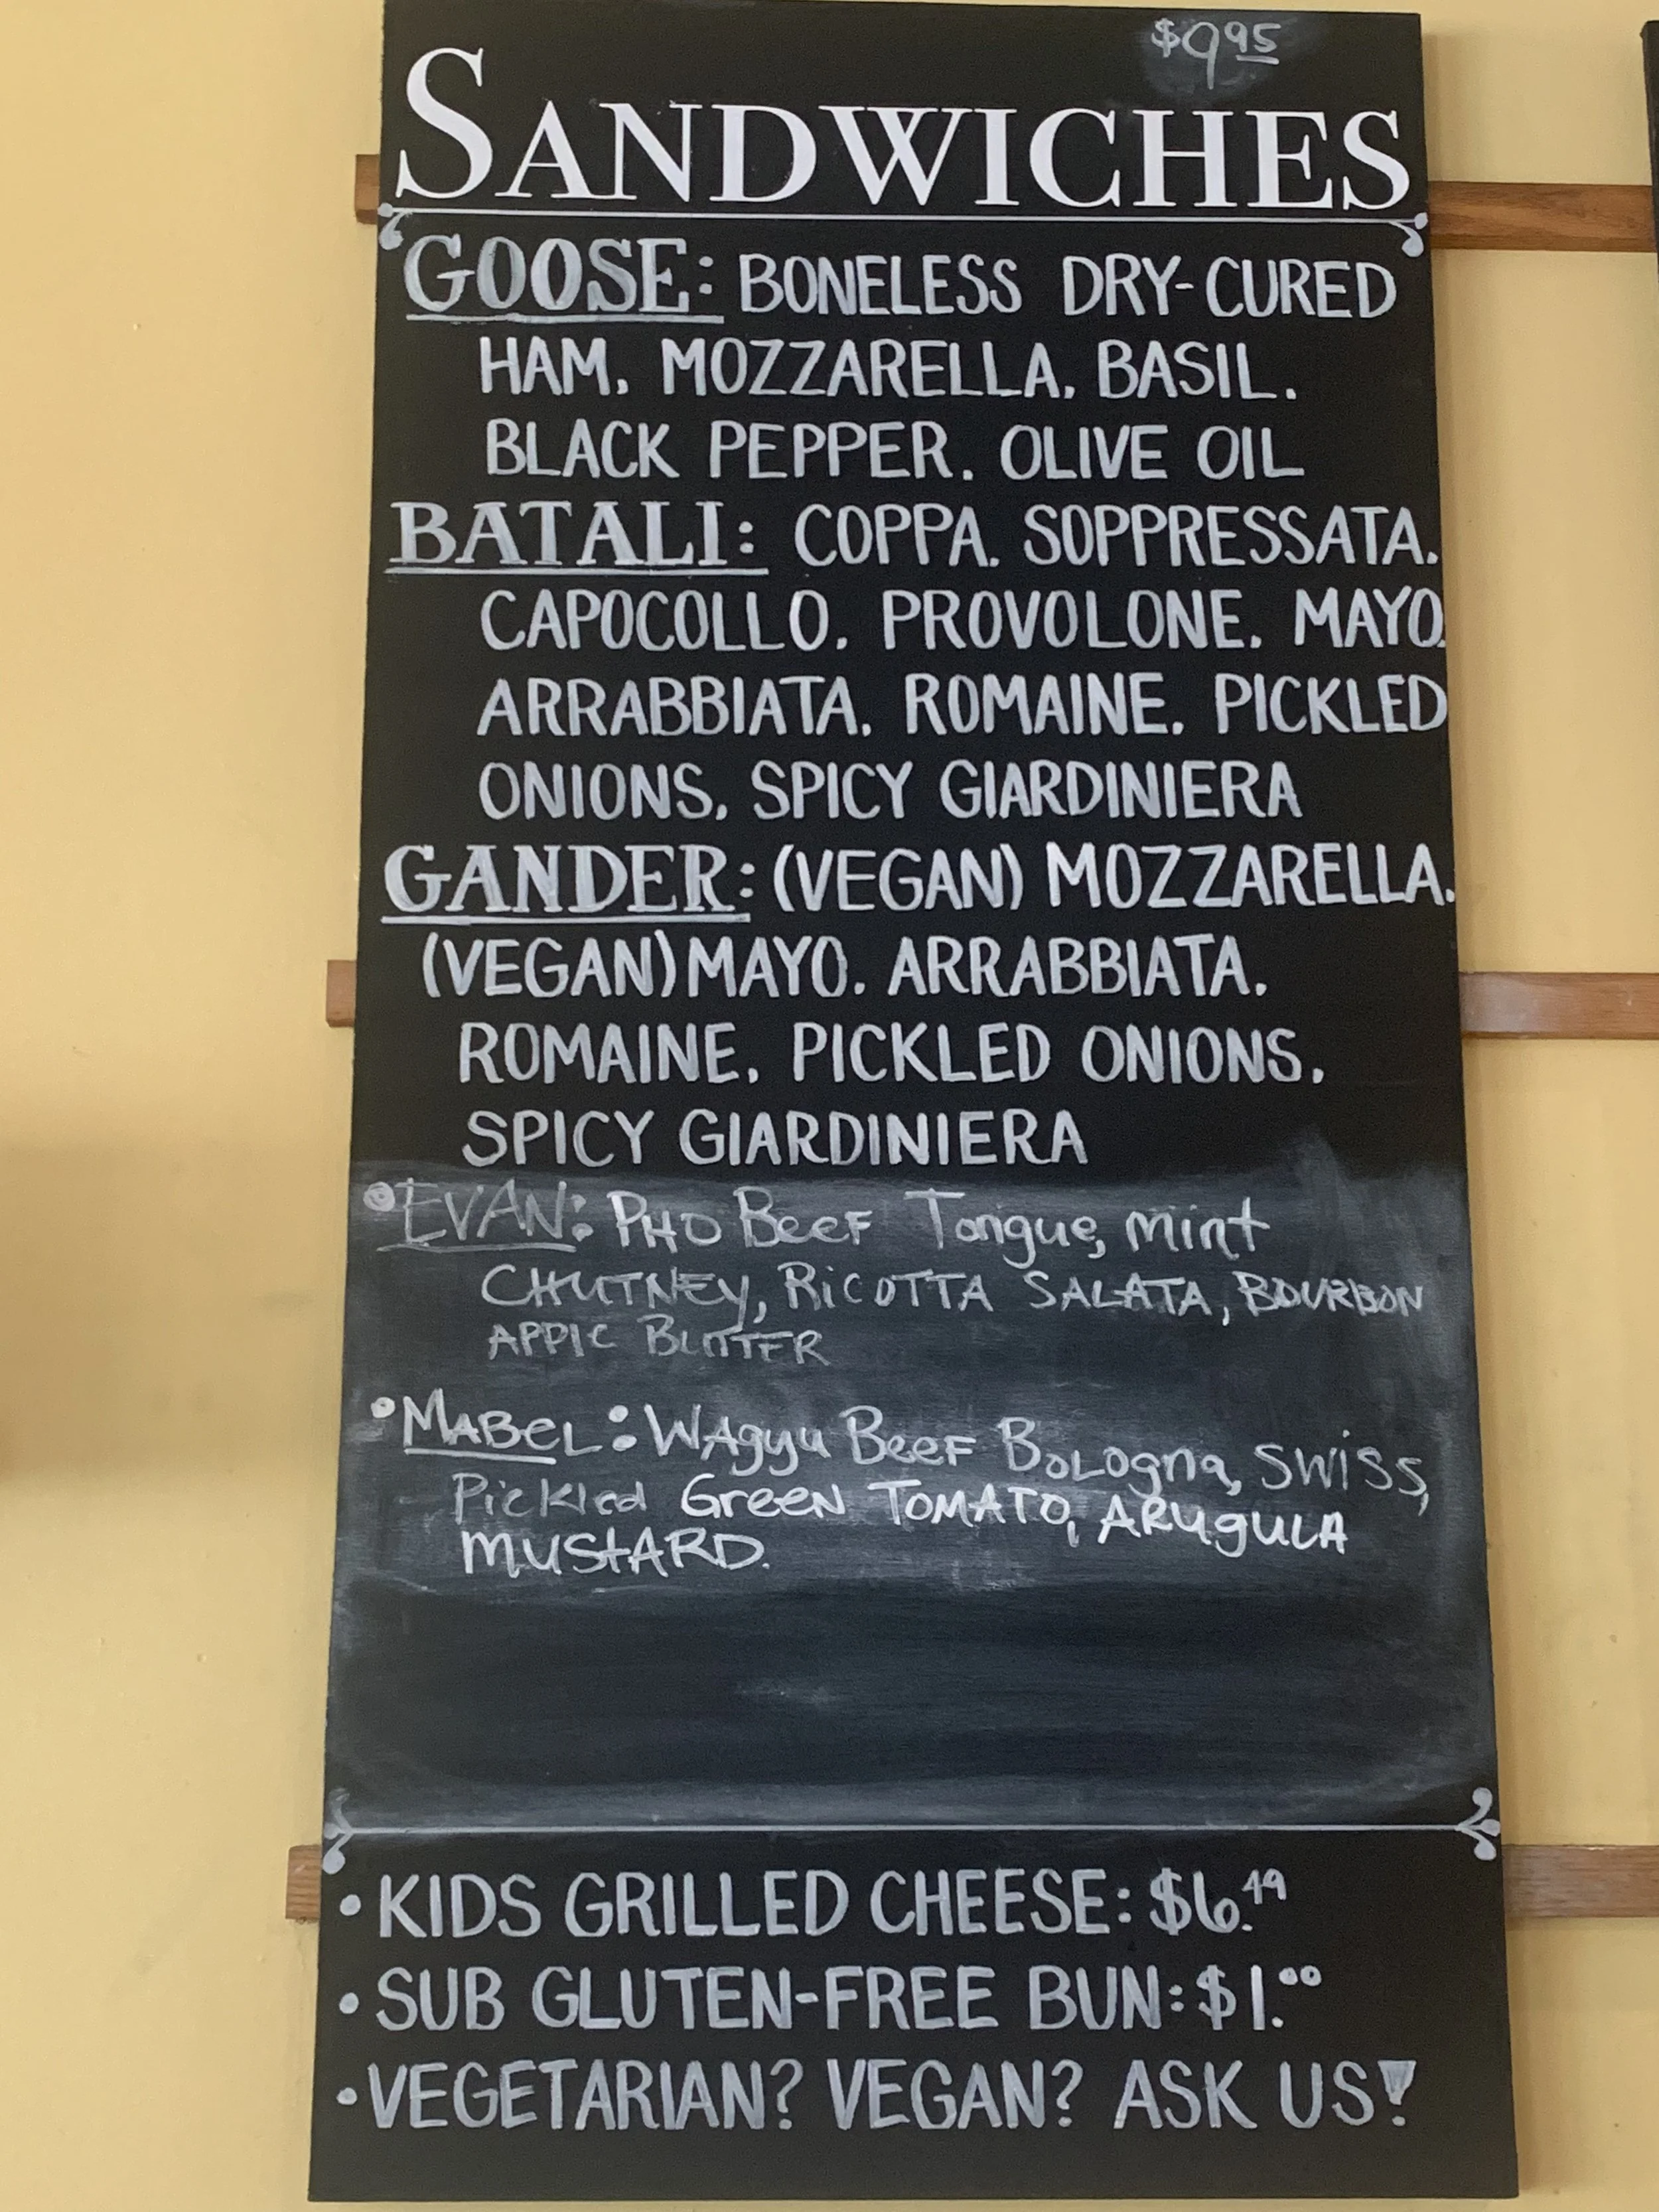 $9.95
SANDWICHES
GOOSE: BONELESS DRY-CURED
HAM, MOZZARELLA, BASIL,
BLACK PEPPER, OLIVE OIL
BATALI: COPPA, SOPPRESSATA,
CAPOCOLLO, PROVOLONE, MAYO,
ARRABBIATA, ROMAINE, PICKLED
ONIONS, SPICY GIARDINIERA
GANDER: (VEGAN) MOZZARELLA,
(VEGAN) MAYO, ARRABBIATA,
ROMAINE, PICKLED ONIONS,
SPICY GIARDINIERA
• EVAN: PHO BEEF Tongue, mint
CHUTNEY, RICOTTA SALATA, BOURBON
APPLE BUTTER
• MABEL: WAgyu BEEF BOLogna, SWISS,
Pickled Green TOMATO, ARUgULA
MUStARD.
• KIDS GRILLED CHEESE: $6.49
• SUB GLUTEN-FREE BUN: $1.00
• VEGETARIAN? VEGAN? ASK US!